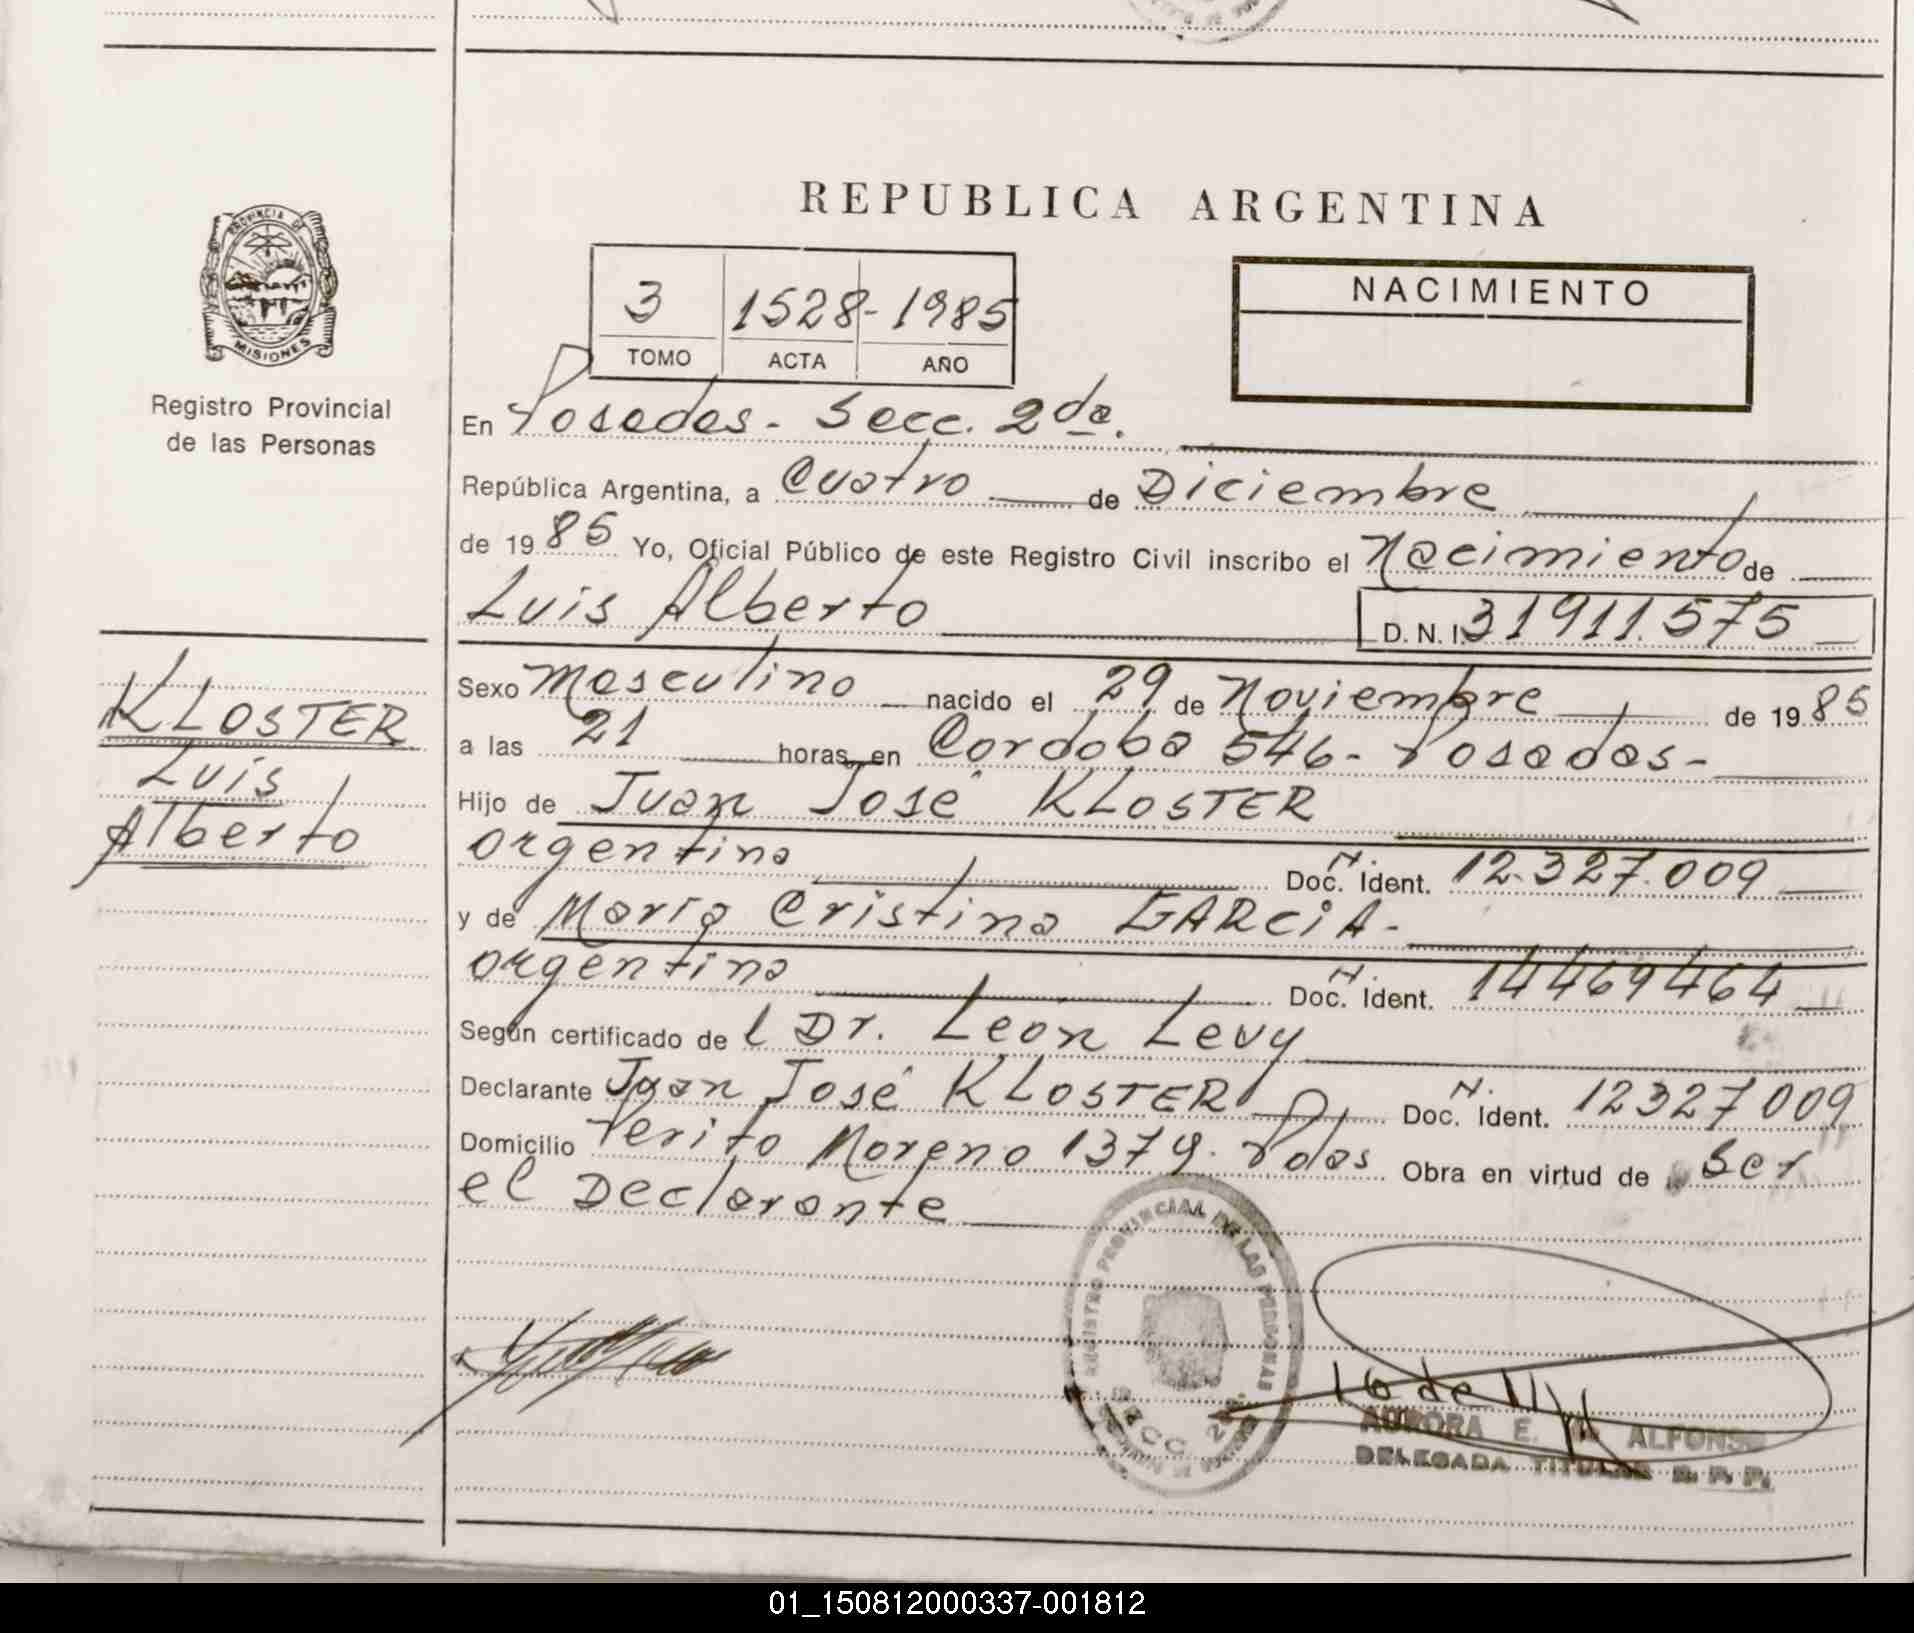 REPUBLICA ARGENTINA
PROVINCIA DE
MISIONES
Registro Provincial
de las Personas
3 1528- 1985
TOMO ACTA AÑO
NACIMIENTO
En Posadas - Secc. 2da.
República Argentina, a Cuatro de Diciembre
de 1985 Yo, Oficial Público de este Registro Civil inscribo el Nacimiento de
Luis Alberto D. N. I. 31911.575
KLOSTER
Luis
Alberto
Sexo Masculino nacido el 29 de Noviembre de 1985
a las 21 horas, en Córdoba 546- Posadas-
Hijo de Juan José KLOSTER
argentino Doc. N. Ident. 12.327.009
y de María Cristina GARCIA-
argentina Doc. N. Ident. 14469464
Según certificado del Dr. León Levy
Declarante Juan José KLOSTER Doc. N. Ident. 12327009
Domicilio Perito Moreno 1379. Pdas Obra en virtud de Ser
el Declarante
REGISTRO PROVINCIAL DE LAS PERSONAS
SECC. 2
16 de
AURORA E. ALFONSO
DELEGADA TITULAR R. P. P.
01_150812000337-001812